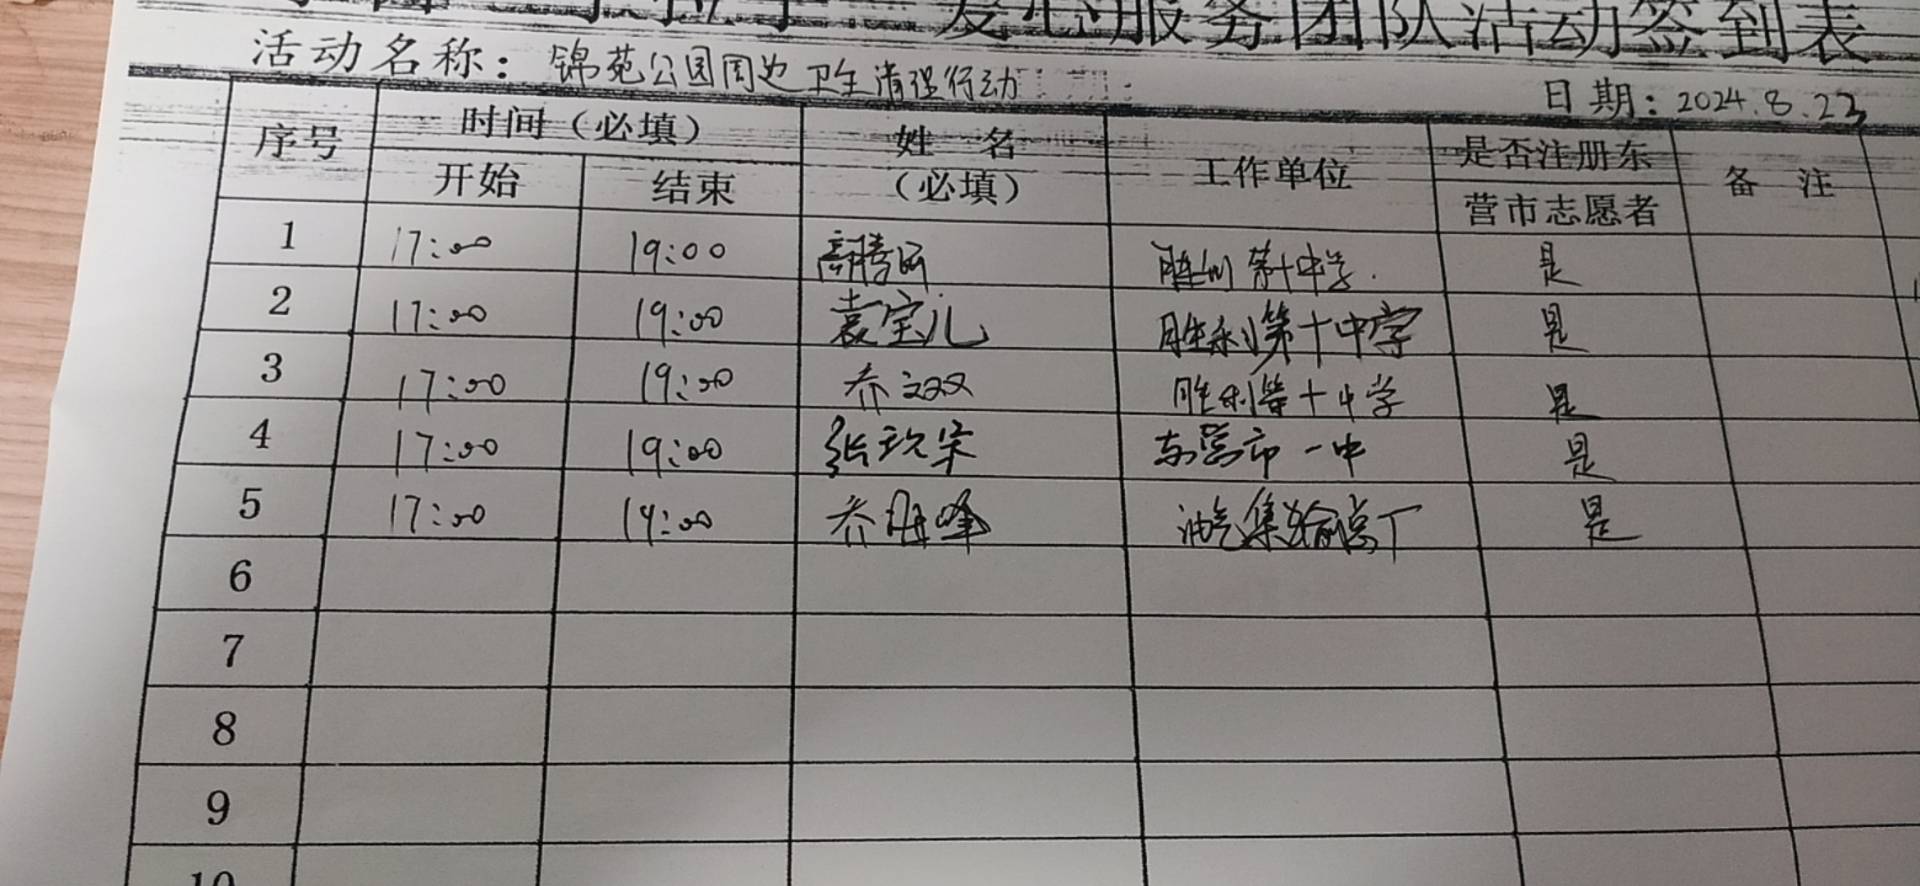 爱心服务团队活动签到表
活动名称：锦苑公园周边卫生清理行动
日期：2024.8.23
序号 时间（必填） 姓名（必填） 工作单位 是否注册东营市志愿者 备注
开始 结束
1 17:00 19:00 胜利第十中学. 是
2 17:00 19:00 袁宝儿 胜利第十中学 是
3 17:00 19:00 乔双双 胜利第十中学 是
4 17:00 19:00 张 东营市一中 是
5 17:00 19:00 乔 峰 油气集输总厂 是
6
7
8
9
10